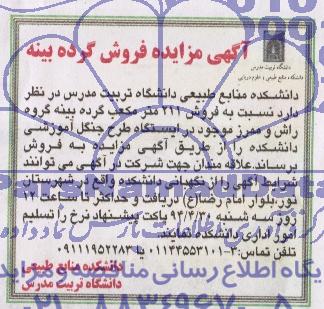 آگهی مزایده فروش گرده بینه
دانشگاه تربیت مدرس
دانشکده منابع طبیعی و علوم دریایی
دانشکده منابع طبیعی دانشگاه تربیت مدرس در نظر
دارد نسبت به فروش ۲۱۱ متر مکعب گرده بینه گروه
راش و ممرز موجود در ایستگاه طرح جنگل آموزشی
دانشکده را از طریق آگهی مزایده به فروش
برساند.علاقه مندان جهت شرکت در آگهی می توانند
شرایط آگهی را از نگهبانی دانشکده واقع در شهرستان
نور.بلوار امام رضا(ع) دریافت و حداکثر تا ساعت ۱۲
روز سه شنبه ۹۴/۴/۳۰ پاکت پیشنهاد نرخ را تسلیم
امور اداری دانشکده نمایند.
تلفن تماس:۳-۰۱۱۴۴۵۵۳۱۰۱ یا ۰۹۱۱۱۹۵۲۲۸۳
دانشکده منابع طبیعی
دانشگاه تربیت مدرس
پایگاه اطلاع رسانی مناقصه و مزایده
۰۲۱-۸۸۳۴۹۶۷۰-۵